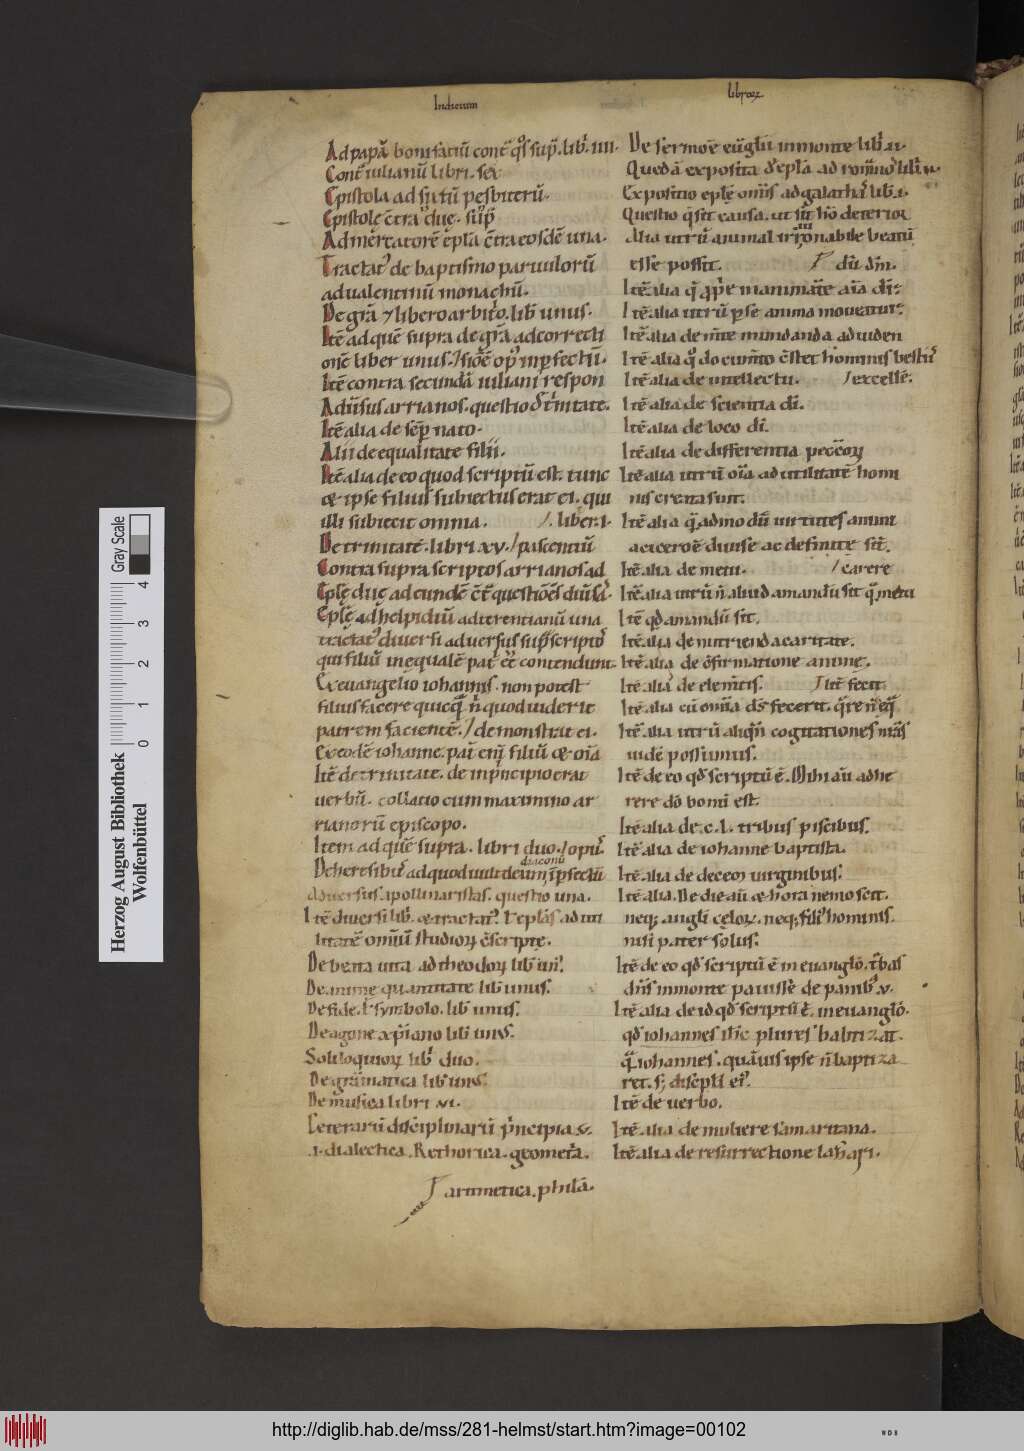 Indiculum
libroꝝ
Ad papā bonifatiū cont̄ q̊s sup̄. lib̄. iiii.
Cont̄ iulianū libri. sex
Epistola ad sixtū pesbiterū.
Epistolę c̄tra duę. sup̄
Ad mercatorē ep̄la c̄tra eosdē una.
Tractat᷒ de baptismo paruulorū
ad ualentinū monachū.
De grā ⁊ libero arbit̄o. lib̄ unus.
Itē ad quē supra de grā ad correcti
onē liber unus. / siōē op᷒ inp̄fectū.
Itē contra secundā iuliani respon
Aduīsus arrianos. questio d̄ t̄nitate.
Itē alia de sēp nato.
Alii de equalitate filii.
Itē alia de eo quod scriptū est. tunc
& ipse filius subiectus erat ei. qui
illi subiecit omnia. /. liber. i.
De trinitate. libri xv. / pascentiū
Contra supra scriptos arrianos ad
Epłę duę ad eundē
Epłę ad helpidiū ad terentianū una
tractat᷒ diuersi aduersus sup̄scripto᷒
qui filiū inequalē pat̄ēē contendunt.
Ex euangelio iohannis. non potest
filius facere quicq̄ n̄ quod uiderit
patrem facientē. / demonstrat ei.
Ex eodē iohanne. pat̄ eni᷒ filiū & oīa
Itē de trinitate. de inp̄ncipio erat
uerbū. collatio cum maximino ar
rianorū episcopo.
Item ad quē supra. libri duo. / opu᷒
diaconū
De heresib᷒ ad quoduultdeum, īp̄fectū
aduersus. apollinaristas. questio una.
Itē diuersi lib̄. & tractat᷒. ł ep̄las ad uti
litatē omīū studioꝝ c̄scriptę.
De beata uita ad theodoꝝ lib̄ un᷒.
De animę quantitate lib̄ unus.
De fide. ł symbolo. lib̄ unus.
De agone xp̄iano lib̄ unus.
Soliloquioꝝ lib̄ duo.
De gram̄atica lib̄ unus.
De musica libri .vi.
Ceterarū disciplinarū p̄ncipia. v.
.i. dialectica. Rethorica. geomet̄a.
aritmetica. philā.
De sermoē euglii in monte lib̄. ii.
Quedā exposita d̄ epłā ad romano᷒ lib̄. ii.
Expositio epłę omīs ad galathas lib̄. i.
Questio q̄ sit causa. ut sit hō deterior
Alia utrū animal irr̄onabile beatū
esse possit. dū dm̄.
Itē alia q̄ p̄p̄e inanimate aīa dr̄:
Itē alia utrū p̄ se anima moueatur:
Itē alia de m̄te mundanda ad uiden
Itē alia q̊do eum̄to c̄stet hominis bestii᷒
Itē alia de intellectu. / excellē.
Itē alia de scientia di.
Itē alia de loco di.
Itē alia de differentia peccoꝝ
Itē alia utrū oīa ad utilitatē homi
nis creata sint.
Itē alia q̄ adin̄o dū uirtutes animi
a cicerone diuise ac definite sit.
Itē alia de metu. / carere
Itē alia utrū n̄ aliud amandū sit q̄ metu
Itē qd̄ amandū sit.
Itē alia de nutrienda caritate.
Itē alia de c̄firmatione animę.
Itē alia de elem̄tis. / itē fecit.
Itē alia cū omīa ds̄ fecerit. q̄re n̄ eq̄
Itē alia utrū aliq̄n cogitationes nr̄as
uidē possimus.
Itē de eo qd̄ scriptū ē. Mihi aū adhe
rere dō bonū est.
Itē alia de. c. l. tribus piscibus.
Itē alia de iohanne baptista.
Itē alia de decem uirginibus.
Itē alia. De die aū & hora nemo scit.
neq; angli cęloꝝ. neq; fili᷒ hominis.
nisi pater solus.
Itē de eo qd̄ scriptū ē in euanglō. t̄bas
dn̄s in monte pauissē de panib᷒. v.
Itē alia de id qd̄ scriptū ē. in euanglō.
qd̄ iohannes plures babtizat.
q̄ iohannes. quāuis ipse n̄ baptiza
ret. s; discipłi ei᷒.
Itē de uerbo.
Itē alia de muliere samaritana.
Itē alia de resurrectione lazari.
Herzog August Bibliothek
Wolfenbüttel
Gray Scale
0 1 2 3 4
http://diglib.hab.de/mss/281-helmst/start.htm?image=00102
WDB